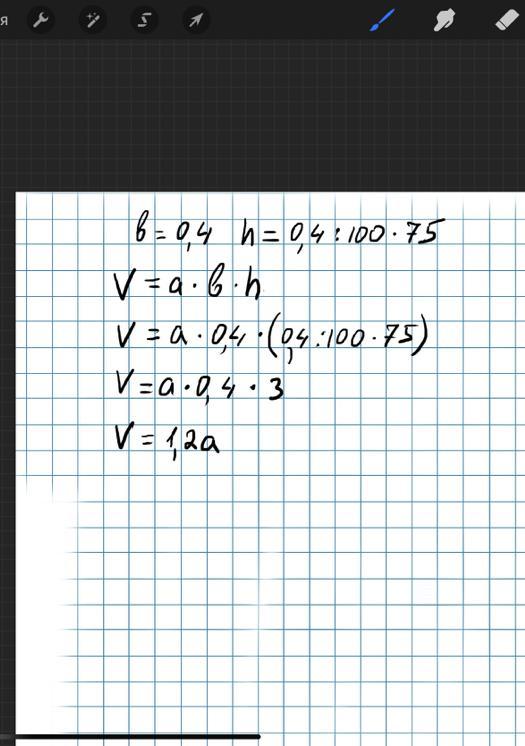 я
в = 0,4 h = 0,4 : 100 · 75
V = a · в · h
V = a · 0,4 · (0,4 : 100 · 75)
V = a · 0,4 · 3
V = 1,2a